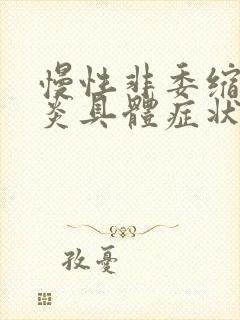 慢性非委缩
炎具體症狀
孜憂